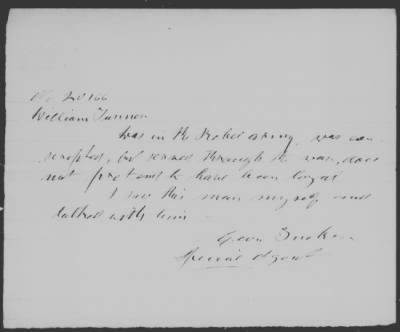 No 20166
William Tannon
was in the Rebel army, was con
scripted, but served through the war, does
not pretend to have been loyal
I saw this man myself and
talked with him
Geo Tucker
Special Agent